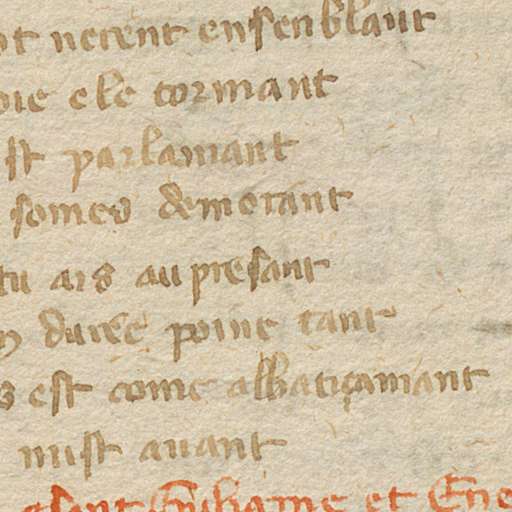 ot necent ensenblant
oie ele tormant
st parlamant
somes demorant
tu ais au presant
durée poine tant
s est come albatiçamant
mist auant
et